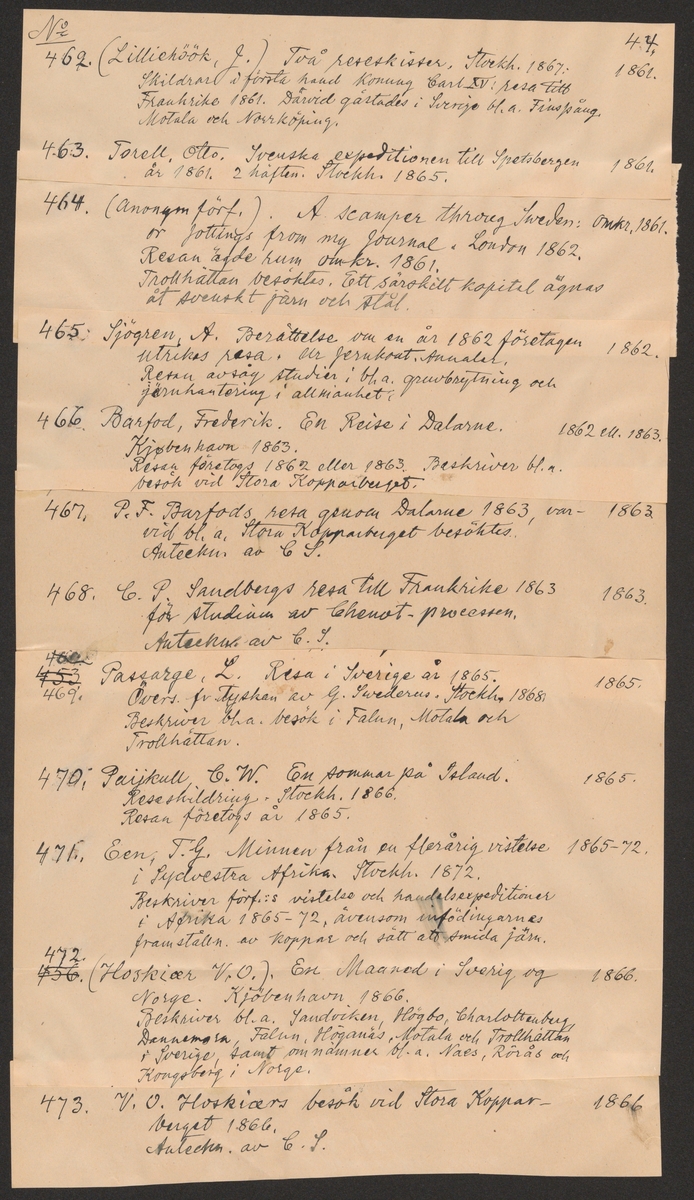 No
44.
462. (Lilliehöök, J.) Två reseskisser. Stockh. 1867: 1861.
Skildrar i första hand Konung Carl XV: resa till
Frankrike 1861. Därvid gästades i Sverige bl.a. Finspång,
Motala och Norrköping.
463. Torell, Otto. Svenska expeditionen till Spetsbergen 1861.
år 1861. 2 häften. Stockh. 1865.
464. (Anonym förf.). A scamper throug Sweden: omkr. 1861.
or Jottings from my Journal. London 1862.
Resan ägde rum omkr. 1861.
Trollhättan besöktes. Ett särskilt kapitel ägnas
åt svenskt järn och stål.
465. Sjögren, A. Berättelse om en år 1862 företagen 1862.
utrikes resa. Ur Jernkont. Annaler.
Resan avsåg studier i bl.a. gruvbrytning och
järnhantering i allmänhet.
466. Barfod, Frederik. En Reise i Dalarne. 1862 ell. 1863.
Kjøbenhavn 1863.
Resan företogs 1862 eller 1863. Beskriver bl.a.
besök vid Stora Kopparberget.
467. P. F. Barfods resa genom Dalarne 1863, var- 1863
vid bl.a. Stora Kopparberget besöktes.
Anteckn. av C S.
468. C. P. Sandbergs resa till Frankrike 1863 1863.
för studium av Chenot-processen.
Anteckn. av C. S.
453
469. Passarge, L. Resa i Sverige år 1865. 1865.
Övers. fr tyskan av G. Swederus. Stockh. 1868.
Beskriver bl.a. besök i Falun, Motala och
Trollhättan.
470. Paijkull, C. W. En sommar på Island. 1865.
Reseskildring. Stockh. 1866.
Resan företogs år 1865.
471. Een, T. G. Minnen från en flerårig vistelse 1865-72.
i Sydvestra Afrika. Stockh. 1872.
Beskriver förf.:s vistelse och handelsexpeditioner
i Afrika 1865-72, ävensom infödingarnes
framställn. av koppar och sätt att smida järn.
472.
456. (Hoskiær V. O.). En Maaned i Sverig og 1866.
Norge. Kjöbenhavn, 1866.
Beskriver bl.a. Sandviken, Högbo, Charlottenberg,
Dannemora, Falun, Höganäs, Motala och Trollhättan
i Sverige, samt omnämner bl.a. Naes, Rörås och
Kongsberg i Norge.
473. V. O. Hoskiærs besök vid Stora Koppar- 1866
berget 1866.
Anteckn. av C. S.